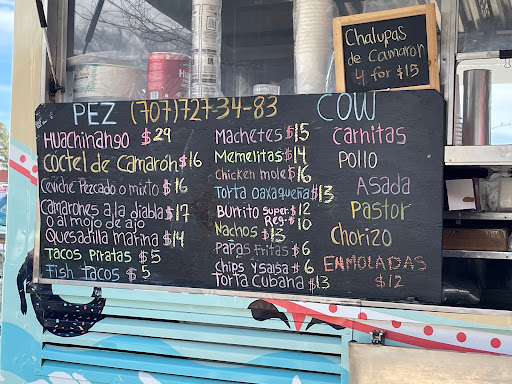 Chalupas
de Camarón
4 for $15
PEZ (707)727-34-83 COW
Huachinango $29
Coctel de Camarón $16
Ceviche Pezcado o mixto $16
Camarones a la diabla $17
o al mojo de ajo
Quesadilla marina $14
Tacos Piratas $5
Fish tacos $5
Machetes $15
Memelitas $14
Chicken mole $16
Torta oaxaqueña $13
Burito super $12
Reg- $10
Nachos $13
Papas Fritas $6
Chips y salsa $6
Torta Cubana $13
Carnitas
Pollo
Asada
Pastor
Chorizo
Enmoladas
$12